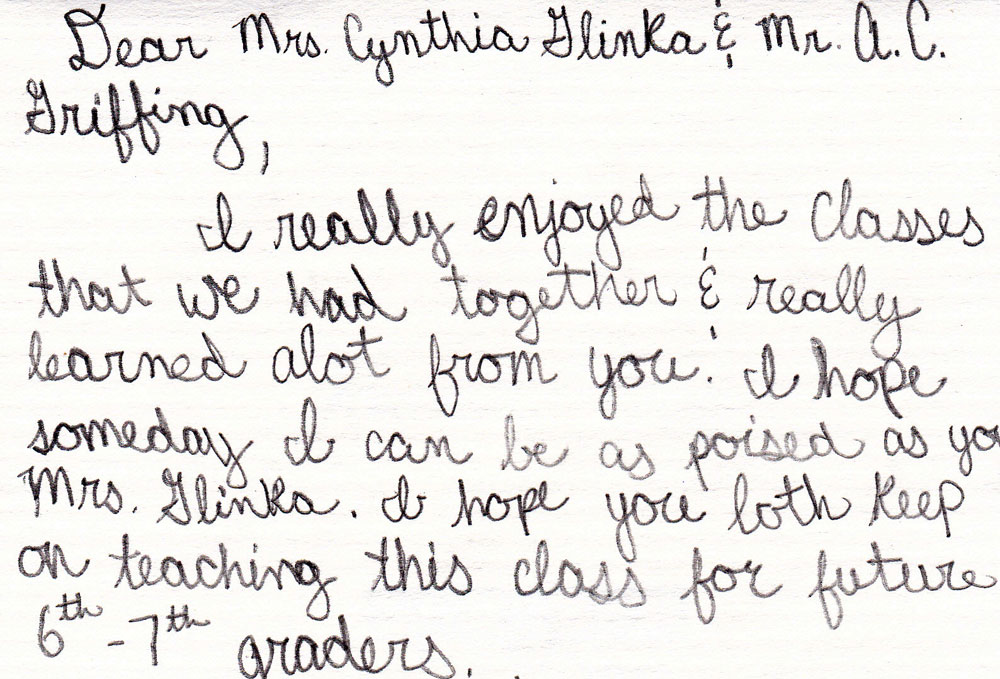 Dear Mrs. Cynthia Glinka & Mr. A.C.
Griffing,
I really enjoyed the classes
that we had together & really
learned alot from you! I hope
someday I can be as poised as you
Mrs. Glinka. I hope you both keep
on teaching this class for future
6th-7th graders.